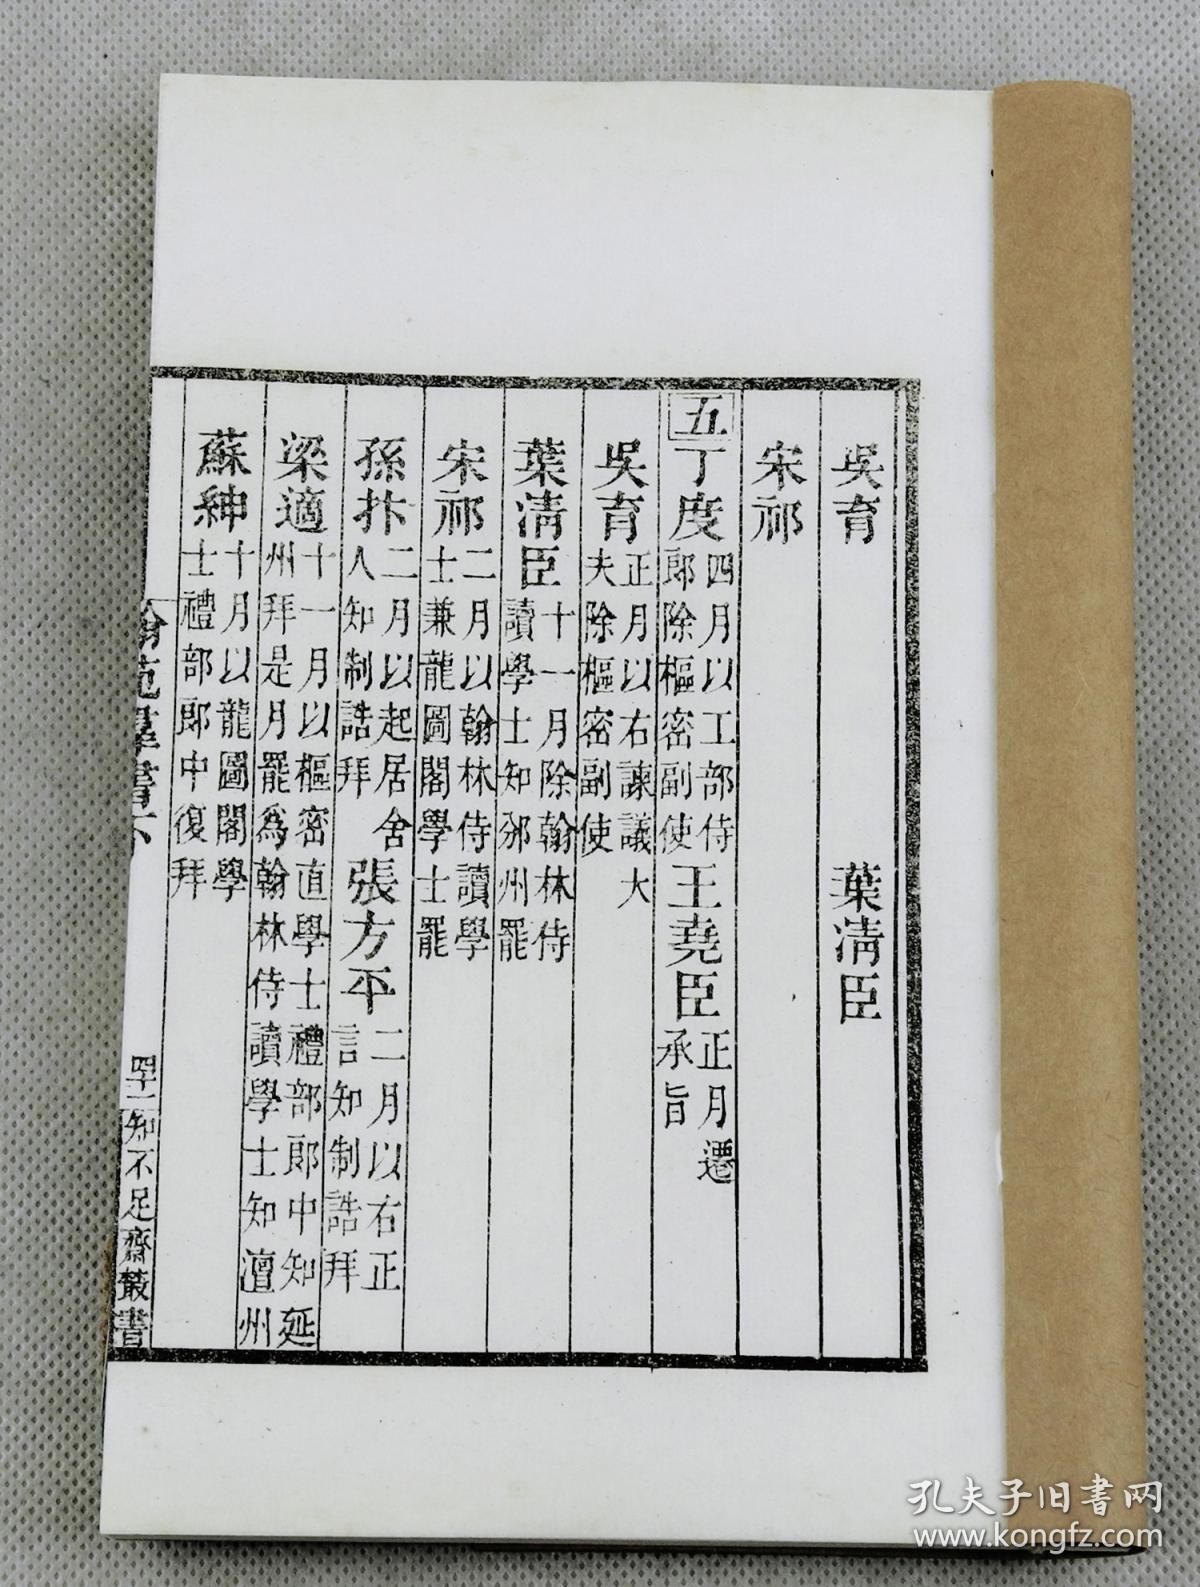 吳育　葉清臣
宋祁
五丁度四月以工部侍郎除樞密副使王堯臣正月遷承旨
吳育正月以右諫議大夫除樞密副使
葉清臣十一月除翰林侍讀學士知邠州罷
宋祁二月以翰林侍讀學士兼龍圖閣學士罷
孫抃二月以起居舍人知制誥拜　張方平二月以右正言知制誥拜
梁適十一月以樞密直學士禮部郎中知延州拜是月罷爲翰林侍讀學士知澶州
蘇紳十月以龍圖閣學士禮部郎中復拜
翰苑羣書下
四十一
知不足齋叢書
孔夫子旧書网
www.kongfz.com